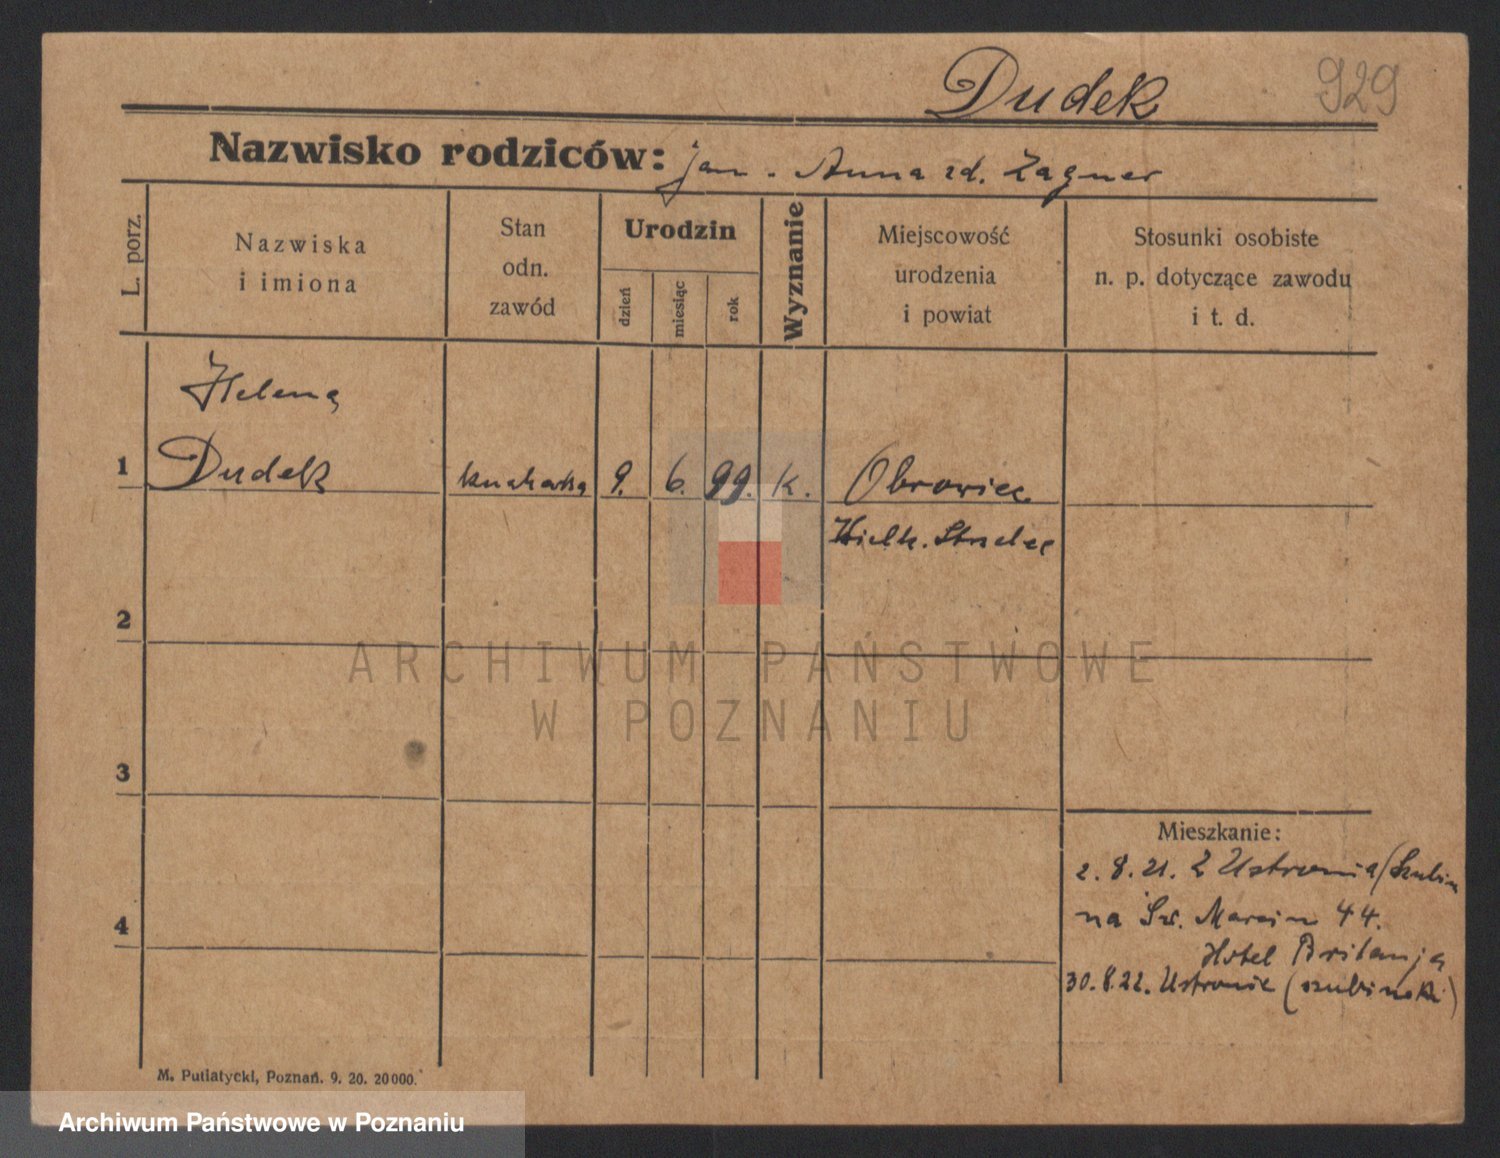 Dudek 929
Nazwisko rodziców: Jan - Anna zd. Zagner
L. porz.
Nazwiska
i imiona
Stan
odn.
zawód
Urodzin
dzień
miesiąc
rok
Wyznanie
Miejscowość
urodzenia
i powiat
Stosunki osobiste
n. p. dotyczące zawodu
i t. d.
Helena
1 Dudek kucharka 9. 6. 99. k. Obrowiec
Wielk. Strzelec
2
3
4
Mieszkanie:
2. 8. 21. Z Ustronia (Szubin
na Św. Marcin 44.
Hotel Britanja
30. 8. 22. Ustronie (szubinski)
M. Putiatycki, Poznań. 9. 20. 20000.
ARCHIWUM PAŃSTWOWE
W POZNANIU
Archiwum Państwowe w Poznaniu